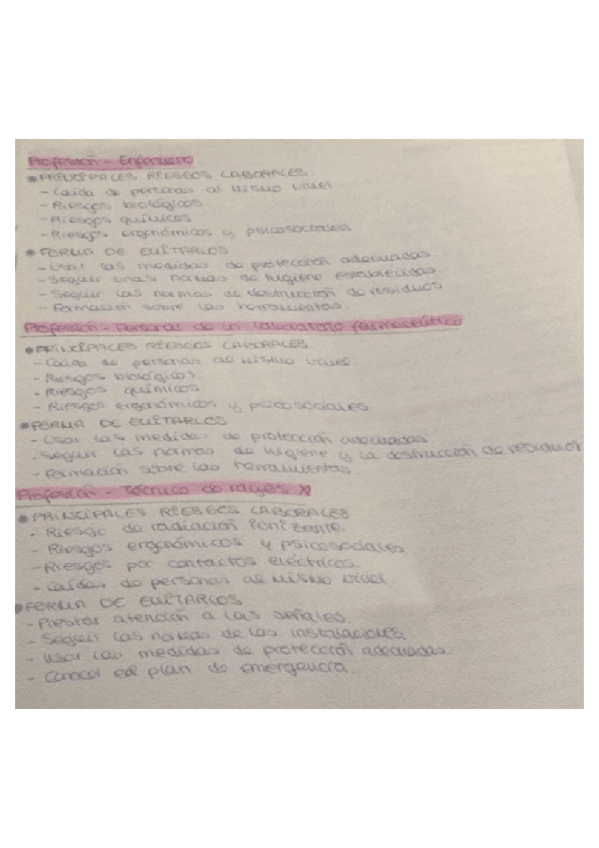 Profesión - Enfermero
• PRINCIPALES RIESGOS LABORALES
- Caída de personas al mismo nivel
- Riesgos biológicos
- Riesgos químicos
- Riesgos ergonómicos y psicosociales
• FORMA DE EVITARLOS
- Usar las medidas de protección adecuadas.
- Seguir unas normas de higiene establecidas
- Seguir las normas de destrucción de residuos
- Formación sobre las herramientas.
Profesión - Personal de un laboratorio farmacéutico
• PRINCIPALES RIESGOS LABORALES
- Caída de personas al mismo nivel.
- Riesgos biológicos
- Riesgos químicos
- Riesgos ergonómicos y psicosociales
• FORMA DE EVITARLOS
- Usar las medidas de protección adecuadas
- Seguir las normas de higiene y la destrucción de residuos
- Formación sobre las herramientas.
Profesión - Técnico de rayos X
• PRINCIPALES RIESGOS LABORALES
- Riesgo de radiación Ionizante.
- Riesgos ergonómicos y psicosociales
- Riesgos por contactos eléctricos.
- Caídas de personas al mismo nivel.
• FORMA DE EVITARLOS
- Prestar atención a las señales.
- Seguir las normas de las instalaciones
- Usar las medidas de protección adecuadas.
- Conocer el plan de emergencia.